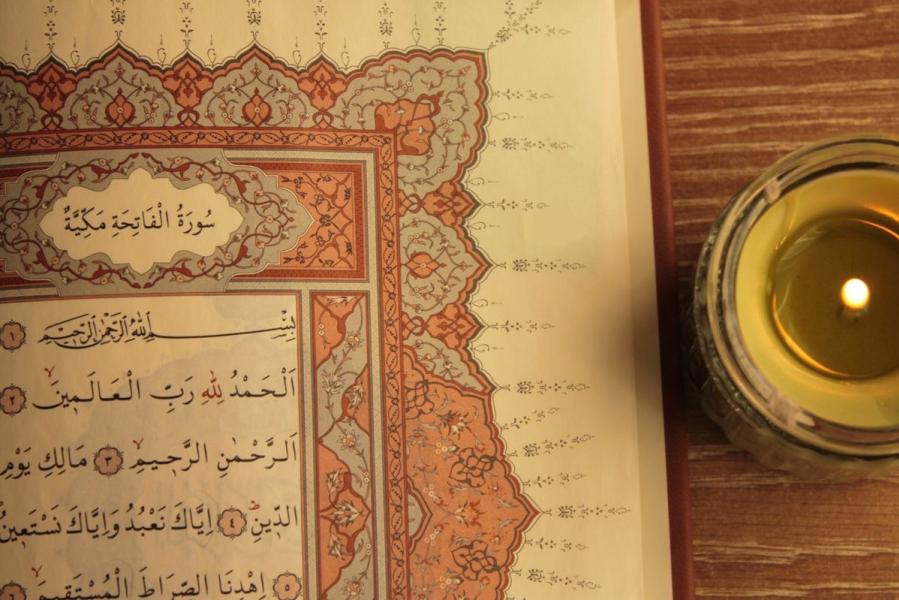 سُورَةُ الْفَاتِحَةِ مَكِّيَّةٌ
بِسْمِ اللهِ الرَّحْمٰنِ الرَّحِيمِ ١
اَلْحَمْدُ لِلّٰهِ رَبِّ الْعَالَمِينَ ٢
اَلرَّحْمٰنِ الرَّحِيمِ ٣ مَالِكِ يَوْمِ
الدِّينِ ٤ اِيَّاكَ نَعْبُدُ وَاِيَّاكَ نَسْتَعِينُ
٥ اِهْدِنَا الصِّرَاطَ الْمُسْتَقِيمَ